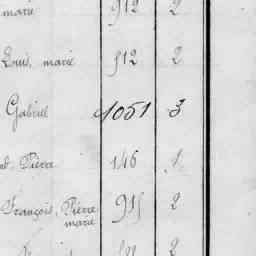 marie 912 2
Louis, marie 512 2
Gabriel 1051 3
Pierre 146 1
François, Pierre 915 2
marie
2